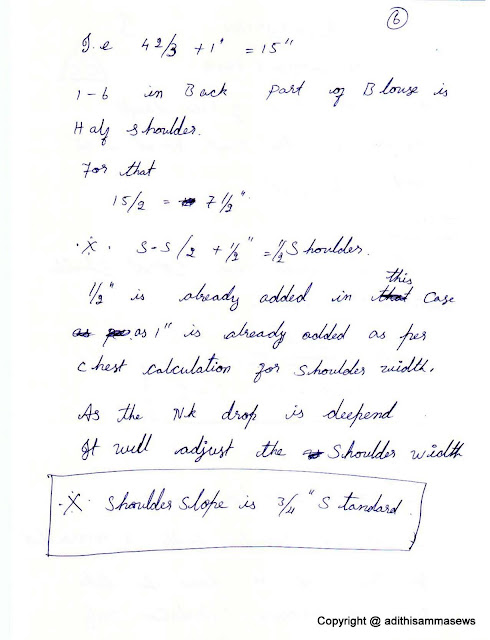 6
I.e 42/3 + 1" = 15"
1-6 in Back part of Blouse is
Half shoulder.
For that
15/2 = 7 1/2"
·X· S-S/2 + 1/2" = 1/2 Shoulder.
this
1/2" is already added in that case
as 1" is already added as per
chest calculation for shoulder width.
As the Nk drop is deepend
It will adjust the Shoulder width
·X· Shoulder Slope is 3/4" Standard.
Copyright @ adithisammasews